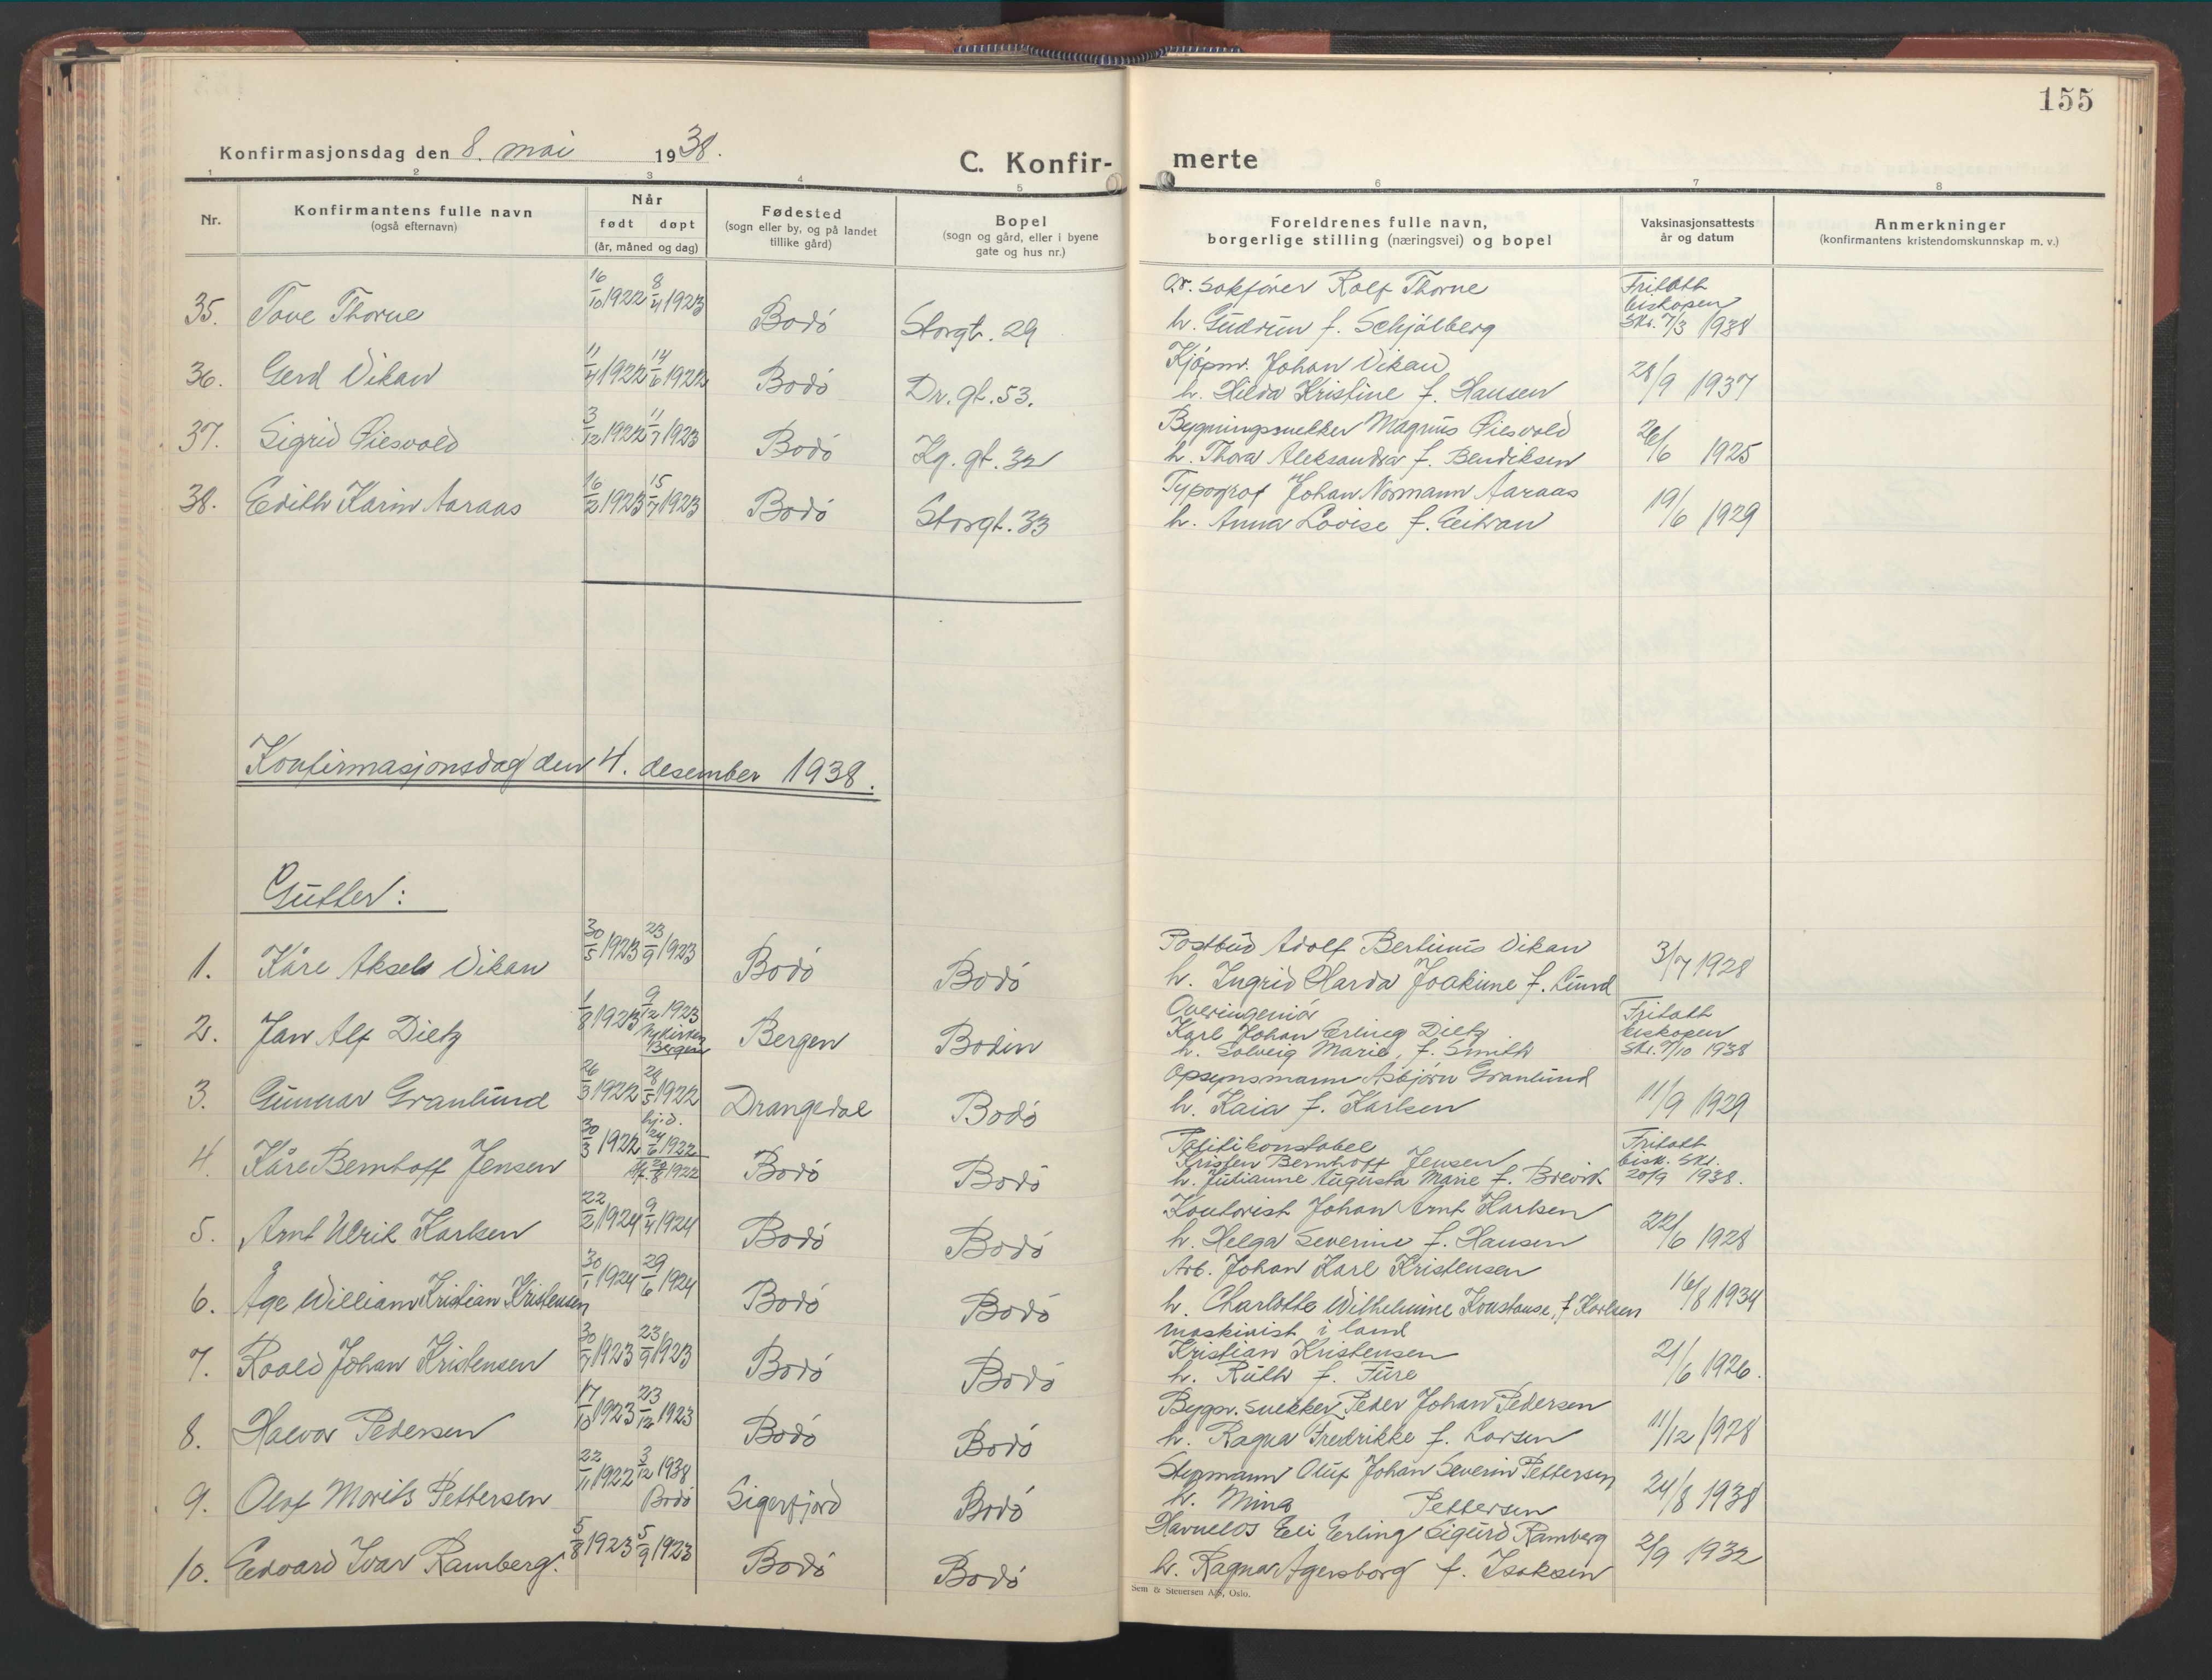 155
Konfirmasjonsdag den 8. mai 1938.
C. Konfir-merte
1 2 3 4 5 6 7 8
Nr.
Konfirmantens fulle navn
(også efternavn)
Når
født døpt
(år, måned og dag)
Fødested
(sogn eller by, og på landet
tillike gård)
Bopel
(sogn og gård, eller i byene
gate og hus nr.)
Foreldrenes fulle navn,
borgerlige stilling (næringsvei) og bopel
Vaksinasjonsattests
år og datum
Anmerkninger
(konfirmantens kristendomskunnskap m. v.)
35. Tove Thorne 16/10 1922 8/4 1923 Bodö Storgt. 29
Or. sakförer Rolf Thorne
h. Gudrun f. Schjölberg
Fritatt
biskopen
Skr. 7/3 1938
36. Gerd Vikan 11/4 1922 14/6 1922 Bodö Dr. gt. 53.
Kjöpm. Johan Vikan
h. Hilda Kristine f. Hansen
28/9 1937
37. Sigrid Øiesvold 3/12 1922 11/7 1923 Bodö Kg. gt. 32
Bygningssnekker Magnus Øiesvold
h. Thora Aleksandra f. Bendiksen
26/6 1925
38. Edith Karin Aaraas 16/2 1923 15/7 1923 Bodö Storgt. 33
Typograf Johan Normann Aaraas
h. Anna Lovise f. Eitran
19/6 1929
Konfirmasjonsdag den 4. desember 1938.
Gutter:
1. Kåre Aksel Vikan 30/5 1923 23/9 1923 Bodö Bodö
Postbud Adolf Bertinus Vikan
h. Ingrid Harda Joakime f. Lund
3/7 1928
2. Jan Alf Dietz 1/8 1923 9/12 1923 Nykirken Bergen Bergen Bodin
Overingeniör
Karl Johan Erling Dietz
h. Solveig Marie, f. Smith
Fritatt
biskopen
skr. 7/10 1938
3. Gunnar Granlund 26/3 1922 28/5 1922 Drangedal Bodö
Opsynsmann Asbjörn Granlund
h. Kaia f. Karlsen
11/9 1929
4. Kåre Bernhoff Jensen 30/3 1922 hj.d. 24/6 1922 Bodö Bodö
Politikonstabel
Kristen Bernhoff Jensen
h. Julianne Augusta Marie f. Brevik
Fritatt
bisk. skr.
20/9 1938.
5. Arnt Ulrik Karlsen 22/2 1924 9/4 1924 Bodö Bodö
Kontorist Johan Arnt Karlsen
h. Helga Severine f. Hansen
22/6 1928
6. Åge William Kristian Kristensen 30/1 1924 29/6 1924 Bodö Bodö
Arb. Johan Karl Kristensen
h. Charlotte Wilhelmine Konstanse, f. Karlsen
16/8 1934
7. Roald Johan Kristensen 30/7 1923 23/9 1923 Bodö Bodö
Maskinist i land
Kristian Kristensen
h. Ruth f. Fure
21/6 1926.
8. Halvor Pedersen 17/10 1923 23/12 1923 Bodö Bodö
Bygn. snekker Peder Johan Pedersen
h. Ragna Fredrikke f. Larsen
11/12 1928
9. Olaf Morits Pettersen 22/11 1922 3/12 1938 Bodö Sigerfjord Bodö
Styrmann Oluf Johan Severin Pettersen
h. Mina Pettersen
24/8 1938
10. Edvard Ivar Ramberg. 5/8 1923 5/9 1923 Bodö Bodö
Havnelos Eli Erling Sigurd Ramberg
h. Ragna Agersborg f. Isaksen
2/9 1932
Sem & Stenersen A/S, Oslo.